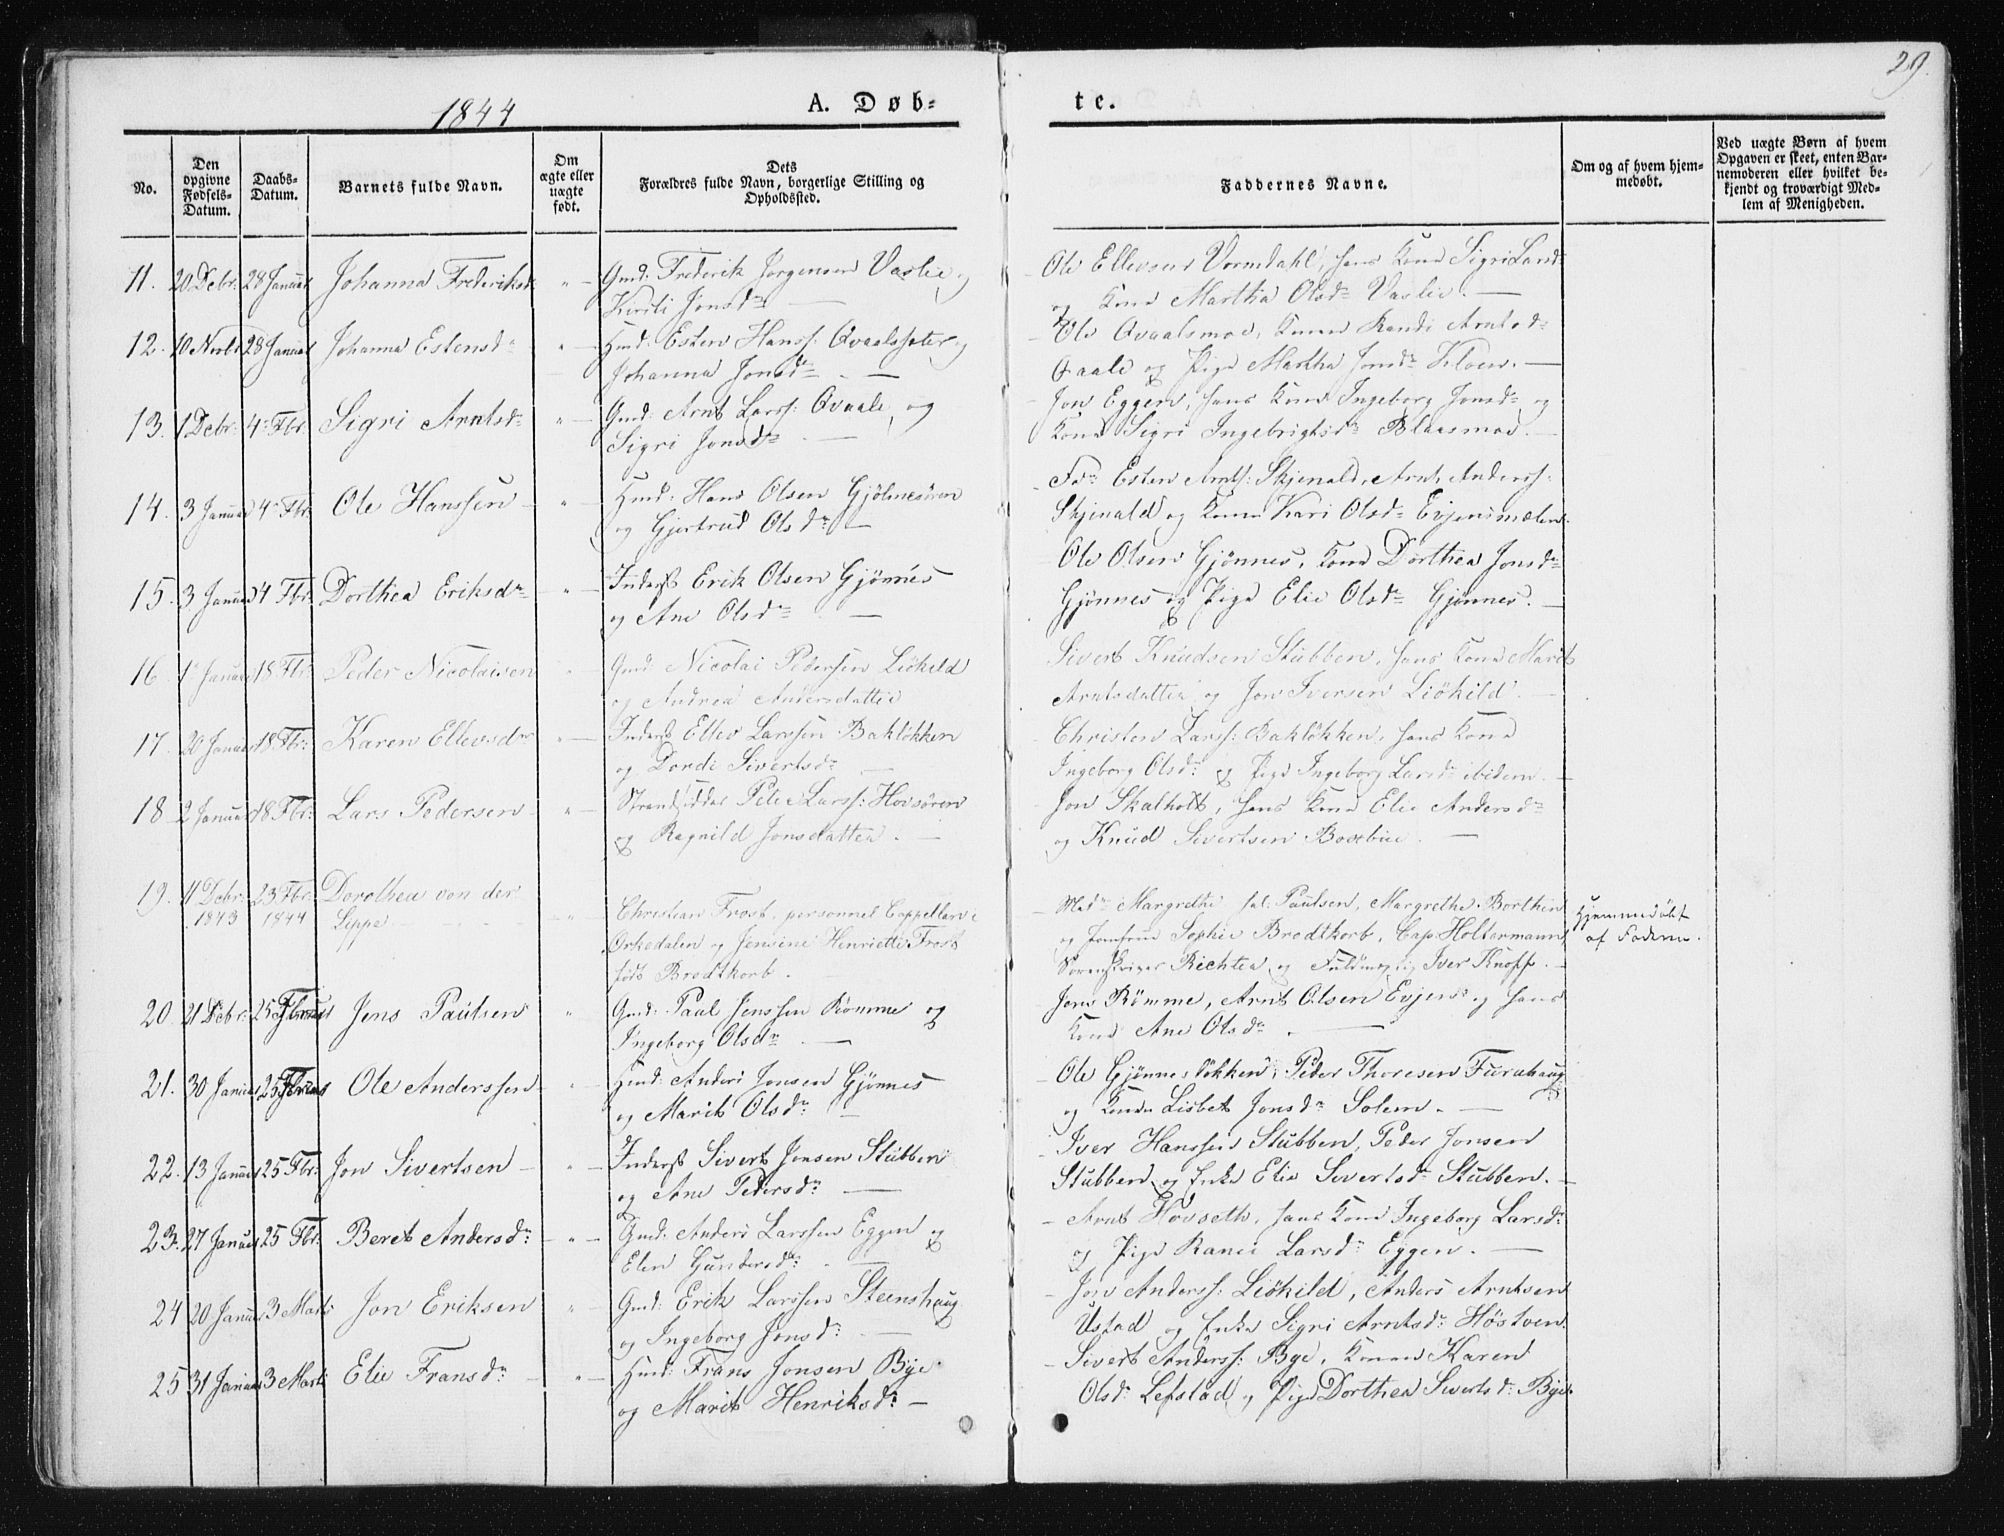 29.
1844
A. Døb-
te.
No.
Den opgivne Fødsels-Datum.
Daabs-Datum.
Barnets fulde Navn.
Om ægte eller uægte født.
Dets Forældres fulde Navn, borgerlige Stilling og Opholdssted.
Faddernes Navne.
Om og af hvem hjem-medøbt.
Ved uægte Børn af hvem Opgaven er skeet, enten Bar-nemoderen eller hvilket be-kjendt og troværdigt Med-lem af Menigheden.
11. 20 Debr. 28 Januar Johanna Frederiksd. " Gmd: Frederik Jørgensen Vaslie og
Kirsti Jonsdr
Ole Ellevsen Vormdahl, hans Kone Sigri Larsd:
og Kone Martha Olsdr Vaslie.
12. 10 Novbr 28 Januar Johanna Estensdr " Hmd: Esten Hanss: Qvaalssæter og
Johanna Jonsdr
Ole Qvaalsmoe, Kone Randi Arntsdr
Qvale og Pige Martha Jonsdr Kloen.
13. 1 Debr. 4 Fbr. Sigri Arntsdr " Gmd: Arnt Larss: Qvaale og
Sigri Jonsdr
Jon Eggen, hans Kone Ingeborg Jonsdr og
Kone Sigri Ingebrigtsdr Blaasmoe.
14. 3 Januar 4 Fbr. Ole Hanssen " Hmd: Hans Olsen Gjølmesøren
og Gjertrud Olsdr
Esten Arnts: Skjenald, Arnt Anderss:
Skjenald og Kone Kari Olsdr Evjensmælen.
15. 3 Januar 4 Fbr. Dorthea Eriksdr " Inderst Erik Olsen Gjønnes
og Ane Olsdr
Ole Olsen Gjønnes, Kone Dorthea Jonsdr
Gjønnes og Pige Elie Olsdr Gjønnes.
16 1 Januar 18 Fbr. Peder Nicolaisen " Gmd: Nicolai Pedersen Liøkild
og Andrea Andersdatter
Sivert Knudsen Stubben, hans Kone Marit
Arntsdatter og Jon Iversen Liøkild.
17. 20 Januar 18 Fbr. Karen Ellevsdr " Inderst Ellev Larssen Bakløkken
og Dordi Sivertsdr
Christen Larss: Bakløkken, hans Kone
Ingeborg Olsdr og Pige Ingeborg Larsdr ibidem.
18 2 Januar 18 Fbr. Lars Pedersen " Strandsidder Peter Larss: Hovsøren
og Ragnild Jonsdatter.
Jon Skalholt, hans Kone Elie Andersdr
og Knud Sivertsen
19. 11 Debr. 1843 23 Fbr. 1844 Dorothea von der
Lippe " Christian Frost, personnel Cappellan i
Orkedalen og Jensine Henriette Frost
født Brodtkorb.
Madm Margrethe sal. Paulsen, Margrethe Borthen
og Jomfrue Sophie Brodtkorb, Cap. Holtermann,
Sorenskriver Richter og Fuldmægtig Iver Knoff.
Hjemmedøbt
af Faderen.
20. 21 Debr. 25 Fbruar Jens Paulsen " Gmd: Paul Jenssen Rømme og
Ingeborg Olsdr
Jens Rømme, Arnt Olsen Evjen og hans
Kone Ane Olsdr.
21. 30 Januar 25 Fbruar Ole Anderssen " Hmd: Anders Jonsen Gjønnes
og Marit Olsdr
Ole Gjønnesløkken, Peder Thoresen Furuhaug
og Kone Lisbet Jonsdr Solem.
22. 13 Januar 25 Fbr. Jon Sivertsen " Inderst Sivert Jonsen Stubben
og Ane Pedersdr
Iver Hanssen Stubben, Peder Jonsen
Stubben og Enke Elie Sivertsdr Stubben.
23. 27 Januar 25 Fbr. Beret Andersdr " Gmd. Anders Larssen Eggen og
Elen Gundersdr.
Arnt Hovseth, hans Kone Ingeborg Larsdr
og Pige Larsdr Eggen.
24 20 Januar 3 Marts Jon Eriksen " Gmd: Erik Larssen Steenshaug
og Ingeborg Jonsdr
Jon Anderss: Liøkild, Anders Arntsen
Ustad og Enke Sigri Arntsdr Høstven
25 31 Januar 3 Marts Elie Fransdr " Hmd: Frans Jonsen Bye
og Marit Henriksdr
Sivert Anderss: Bye, Konen Karen
Olsdr Lefstad og Pige Dorthea Sivertsdr Bye.